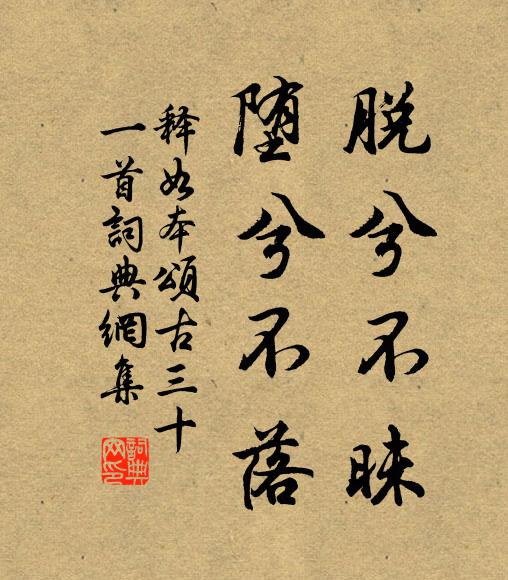 脱兮不昧
堕兮不落
释如本颂古三十
一首词典网集
詞典网印